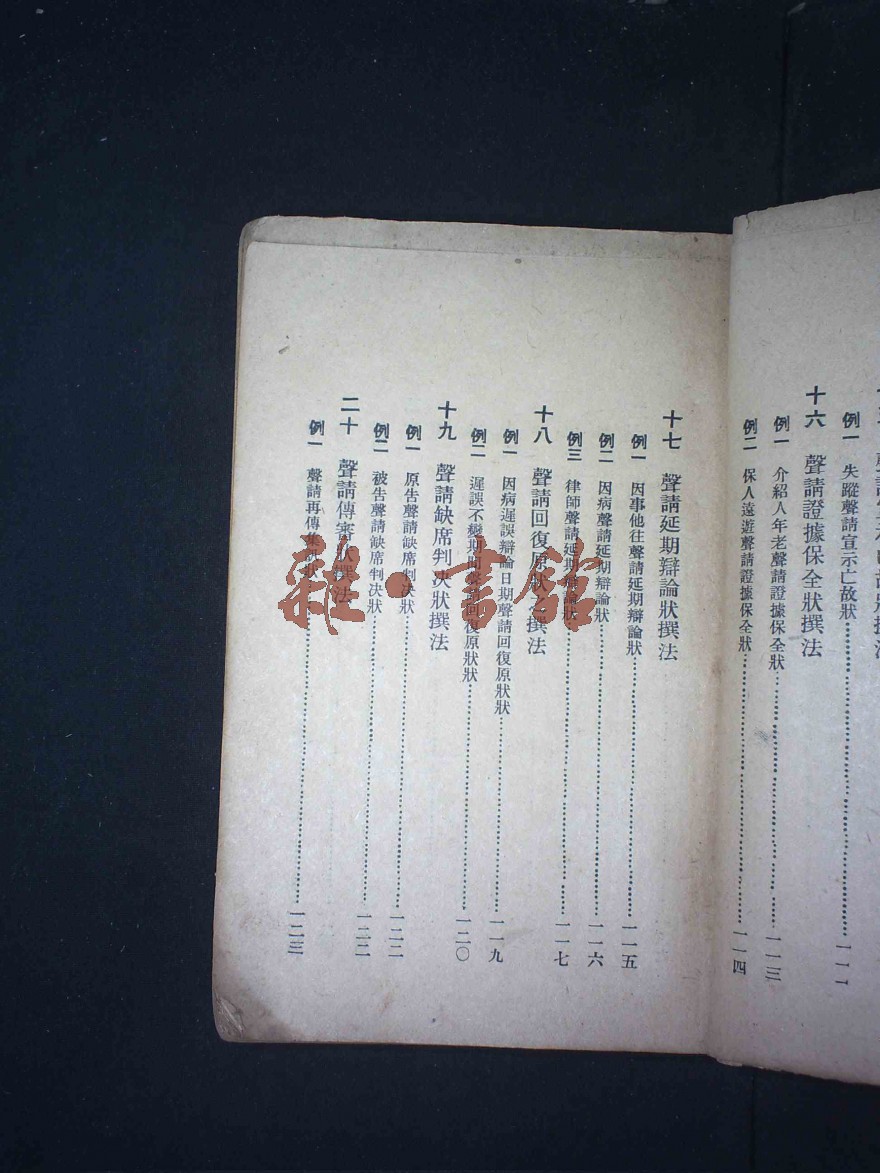 例一 失蹤聲請宣示亡故狀
十六 聲請證據保全狀撰法
例一 介紹人年老聲請證據保全狀……一一三
例二 保人遠遊聲請證據保全狀……一一四
十七 聲請延期辯論狀撰法
例一 因事他往聲請延期辯論狀……一一五
例二 因病聲請延期辯論狀……一一六
例三 律師聲請延期辯論狀……一一七
十八 聲請回復原狀之撰法
例一 因病遲誤辯論日期聲請回復原狀狀……一一九
例二 遲誤不變期間聲請回復原狀狀……一二〇
十九 聲請缺席判決狀撰法
例一 原告聲請缺席判决狀……一二二
例二 被告聲請缺席判决狀……一二二
二十 聲請傳審狀撰法
例一 聲請再傳集訊狀……一二三
雜·書館